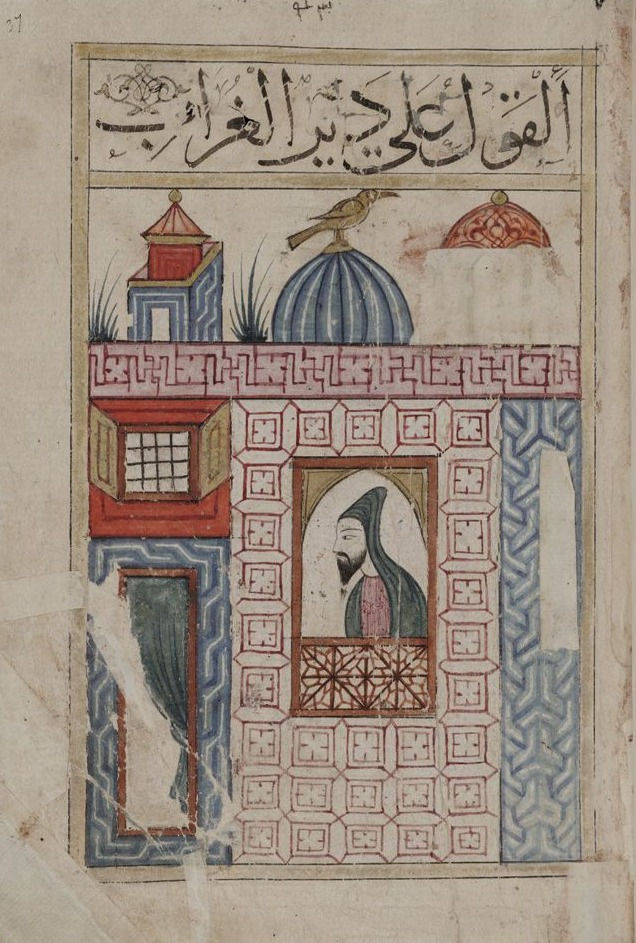 37
القول على دير الغراب